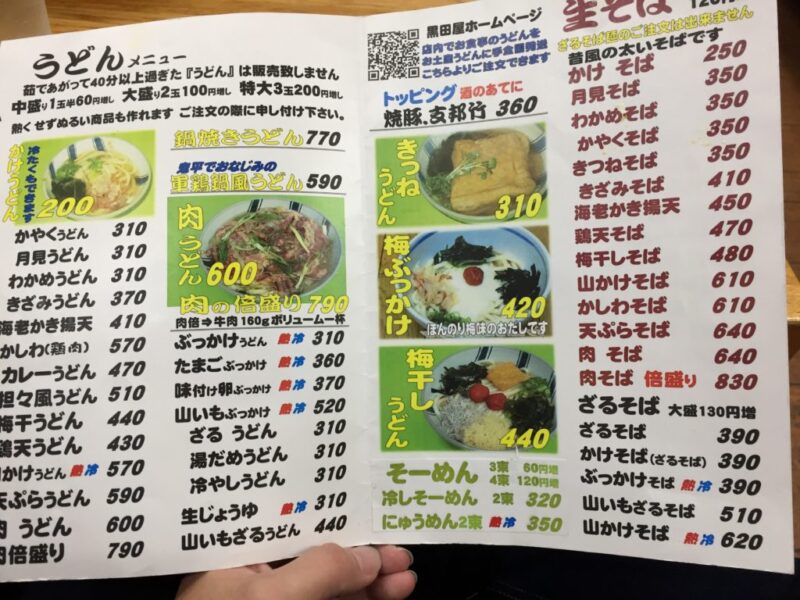 うどんメニュー
茹であがって40分以上過ぎた『うどん』は販売致しません
中盛り1玉半60円増し 大盛り2玉100円増し 特大3玉200円増し
熱くせずぬるい商品も作れます ご注文の際に申し付け下さい。
かけうどん
冷たくもできます
200
かやくうどん 310
月見うどん 310
わかめうどん 310
きざみうどん 370
海老かき揚天 410
かしわ(鶏肉) 570
カレーうどん 470
担々風うどん 510
梅干うどん 440
鶏天うどん 430
かけうどん 熱冷 570
天ぷらうどん 590
肉 うどん 600
肉倍盛り 790
鍋焼きうどん 770
鬼平でおなじみの
軍鶏鍋風うどん 590
肉うどん
600
肉の倍盛り 790
肉倍⇒牛肉160gボリューム一杯
ぶっかけうどん 熱冷 310
たまごぶっかけ 熱冷 360
味付け卵ぶっかけ 熱冷 370
山いもぶっかけ 熱冷 520
ざる うどん 310
湯だめうどん 310
冷やしうどん 310
生じょうゆ 熱冷 310
山いもざるうどん 440
黒田屋ホームページ
店内でお食事のうどんを
お土産うどんに手全国発送
こちらよりご注文できます
トッピング 酒のあてに
焼豚、支那竹 360
きつねうどん
310
梅ぶっかけ
420
ほんのり梅味のおだしです
梅干しうどん
440
そーめん 3束 60円増
4束 120円増
冷しそーめん 2束 320
にゅうめん2束 熱冷 350
生そば
ざるそば麺のご注文は出来ません
昔風の太いそばです
かけ そば 250
月見そば 350
わかめそば 350
かやくそば 350
きつねそば 350
きざみそば 410
海老かき揚天 450
鶏天そば 470
梅干しそば 480
山かけそば 610
かしわそば 610
天ぷらそば 640
肉 そば 640
肉そば 倍盛り 830
ざるそば 大盛130円増
ざるそば 390
かけそば(ざるそば) 390
ぶっかけそば 熱冷 390
山いもざるそば 510
山かけそば 熱冷 620